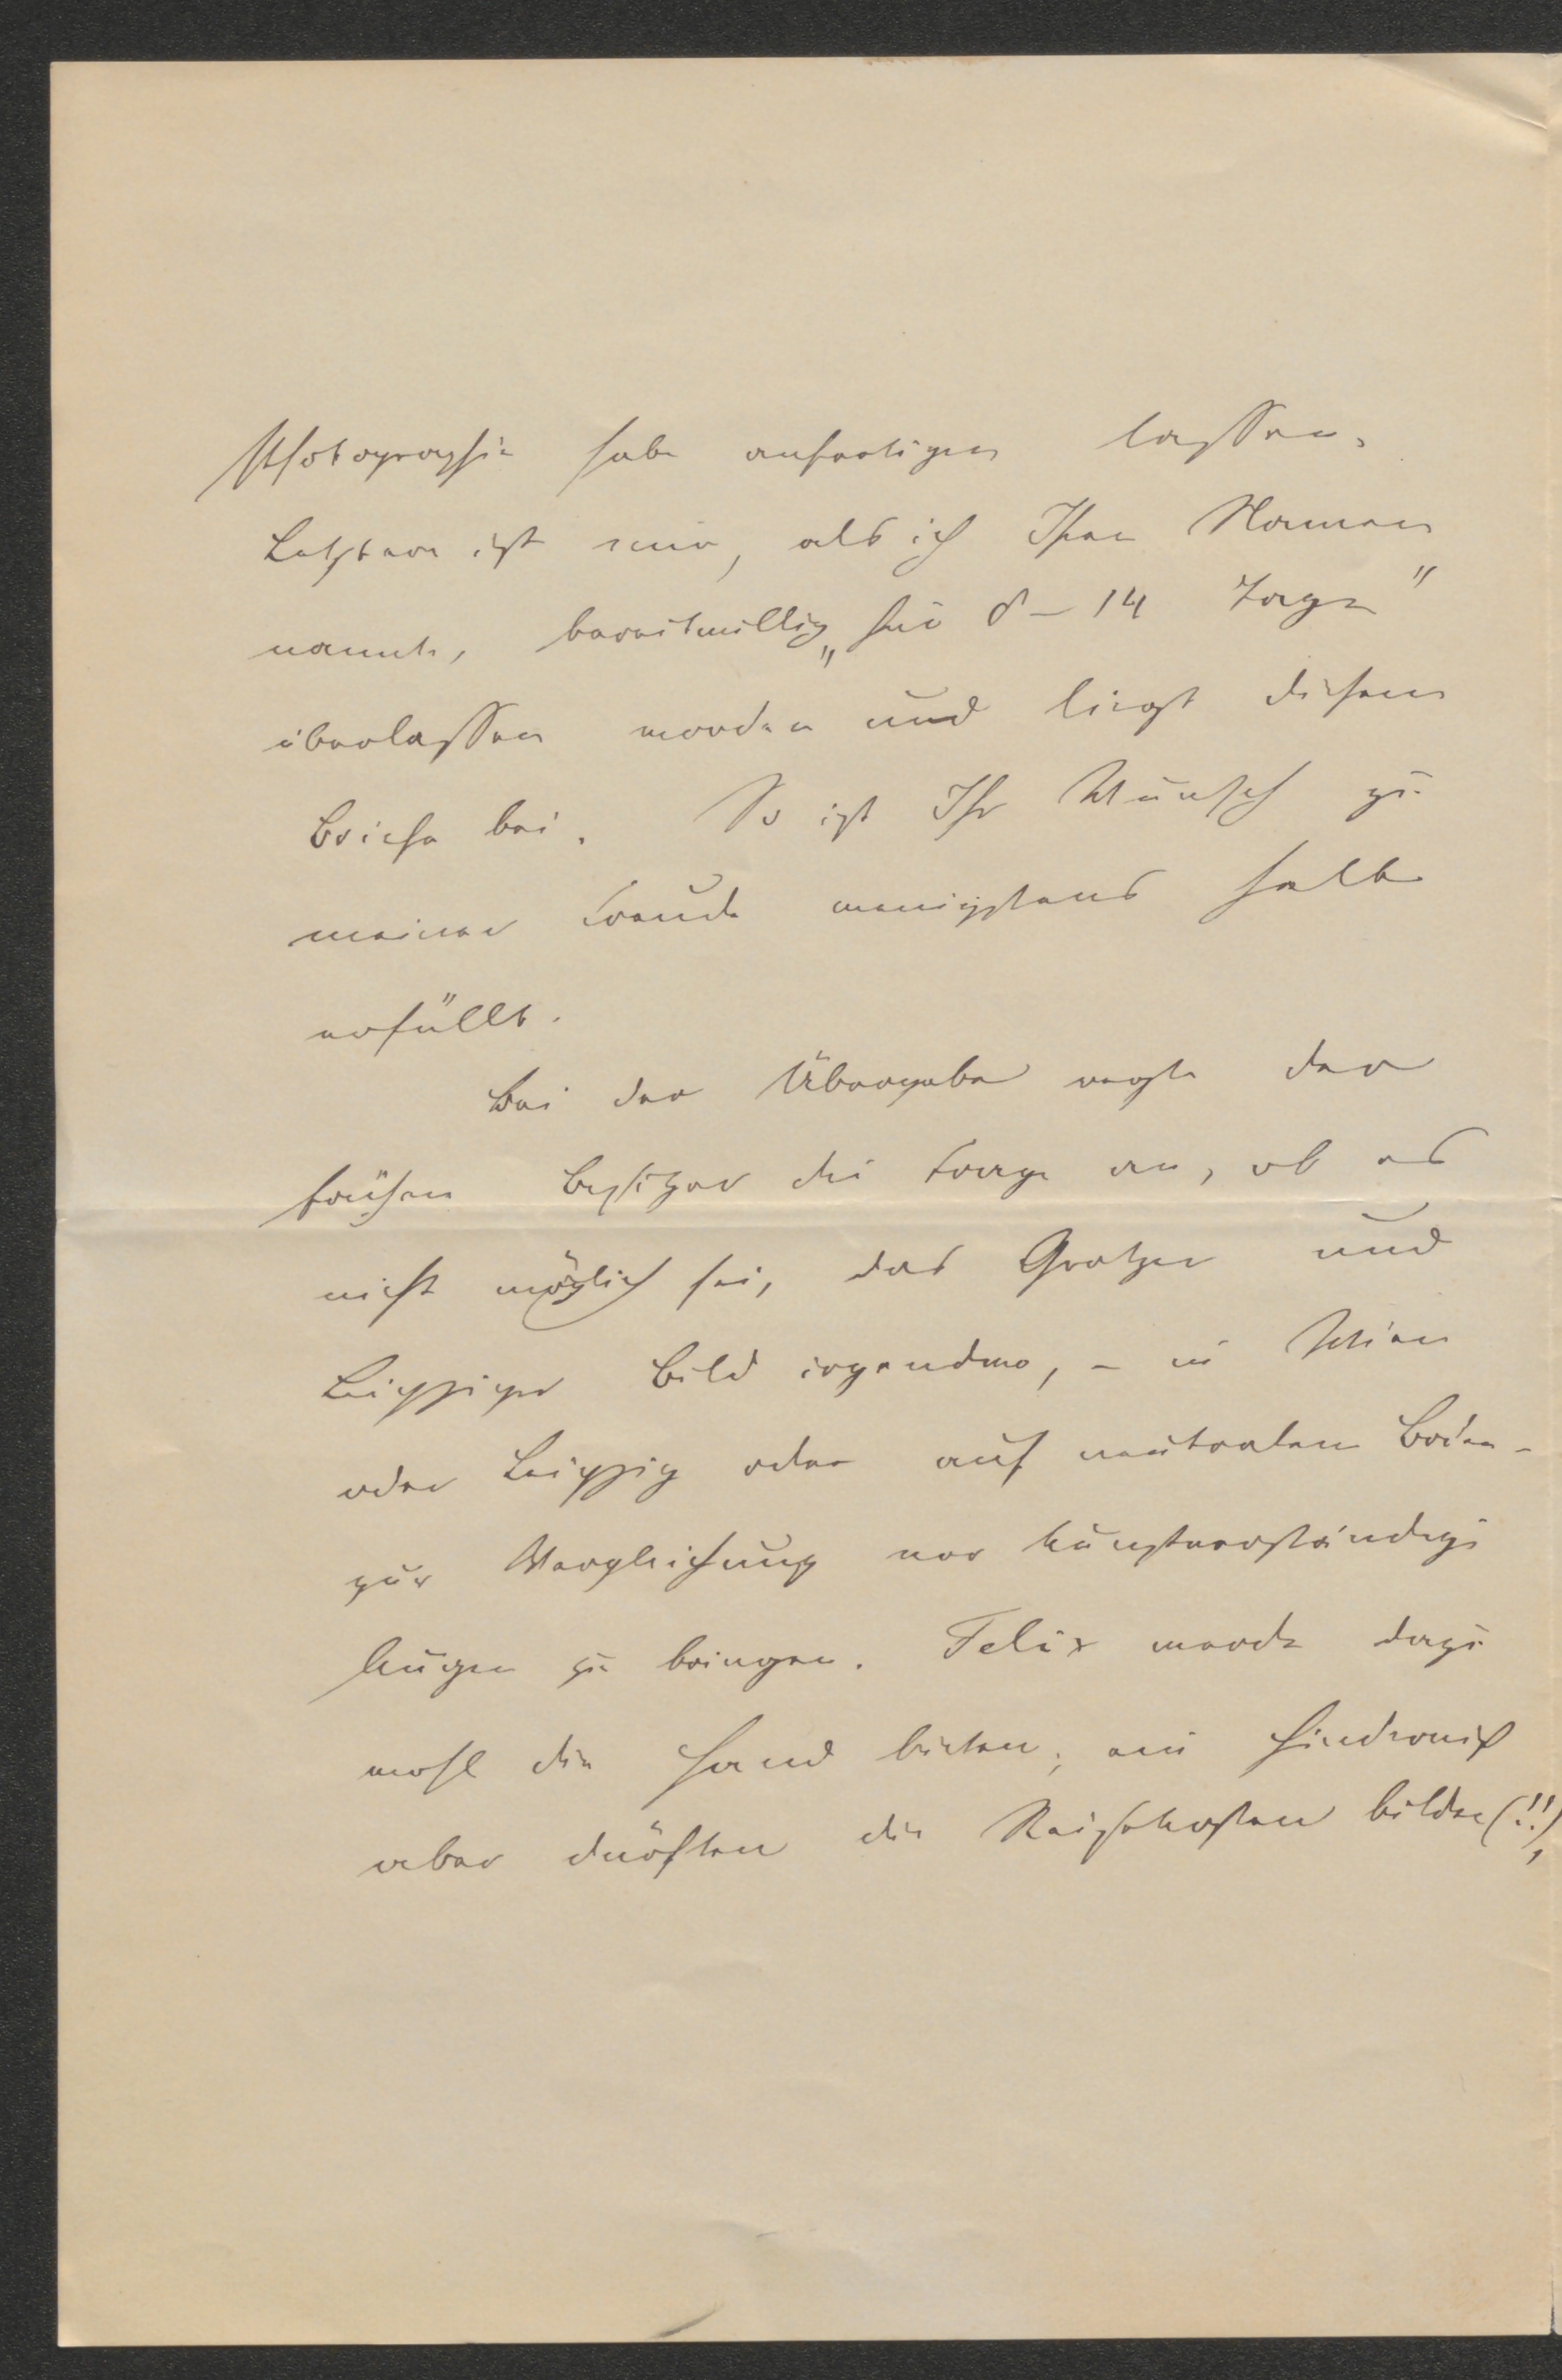 Photographie habe anfertigen lassen.
Letztere ist mir, als ich Ihren Namen
nannte, bereitwillig „für 8–14 Tage"
überlassen worden und liegt diesem
Briefe bei. So ist Ihr Wunsch zu
meiner Freude wenigstens halb
erfüllt.
Bei der Übergabe regte der
frühere Besitzer die Frage an, ob es
nicht möglich sei, das Grazer und
Leipziger Bild irgendwo, – in Wien
oder Leipzig oder auf neutralem Boden –
zur Vergleichung vor kunstverständige
Augen zu bringen. Felix werde dazu
wohl die Hand bieten; ein Hinderniß
aber dürften die Reisekosten bilden (!!),